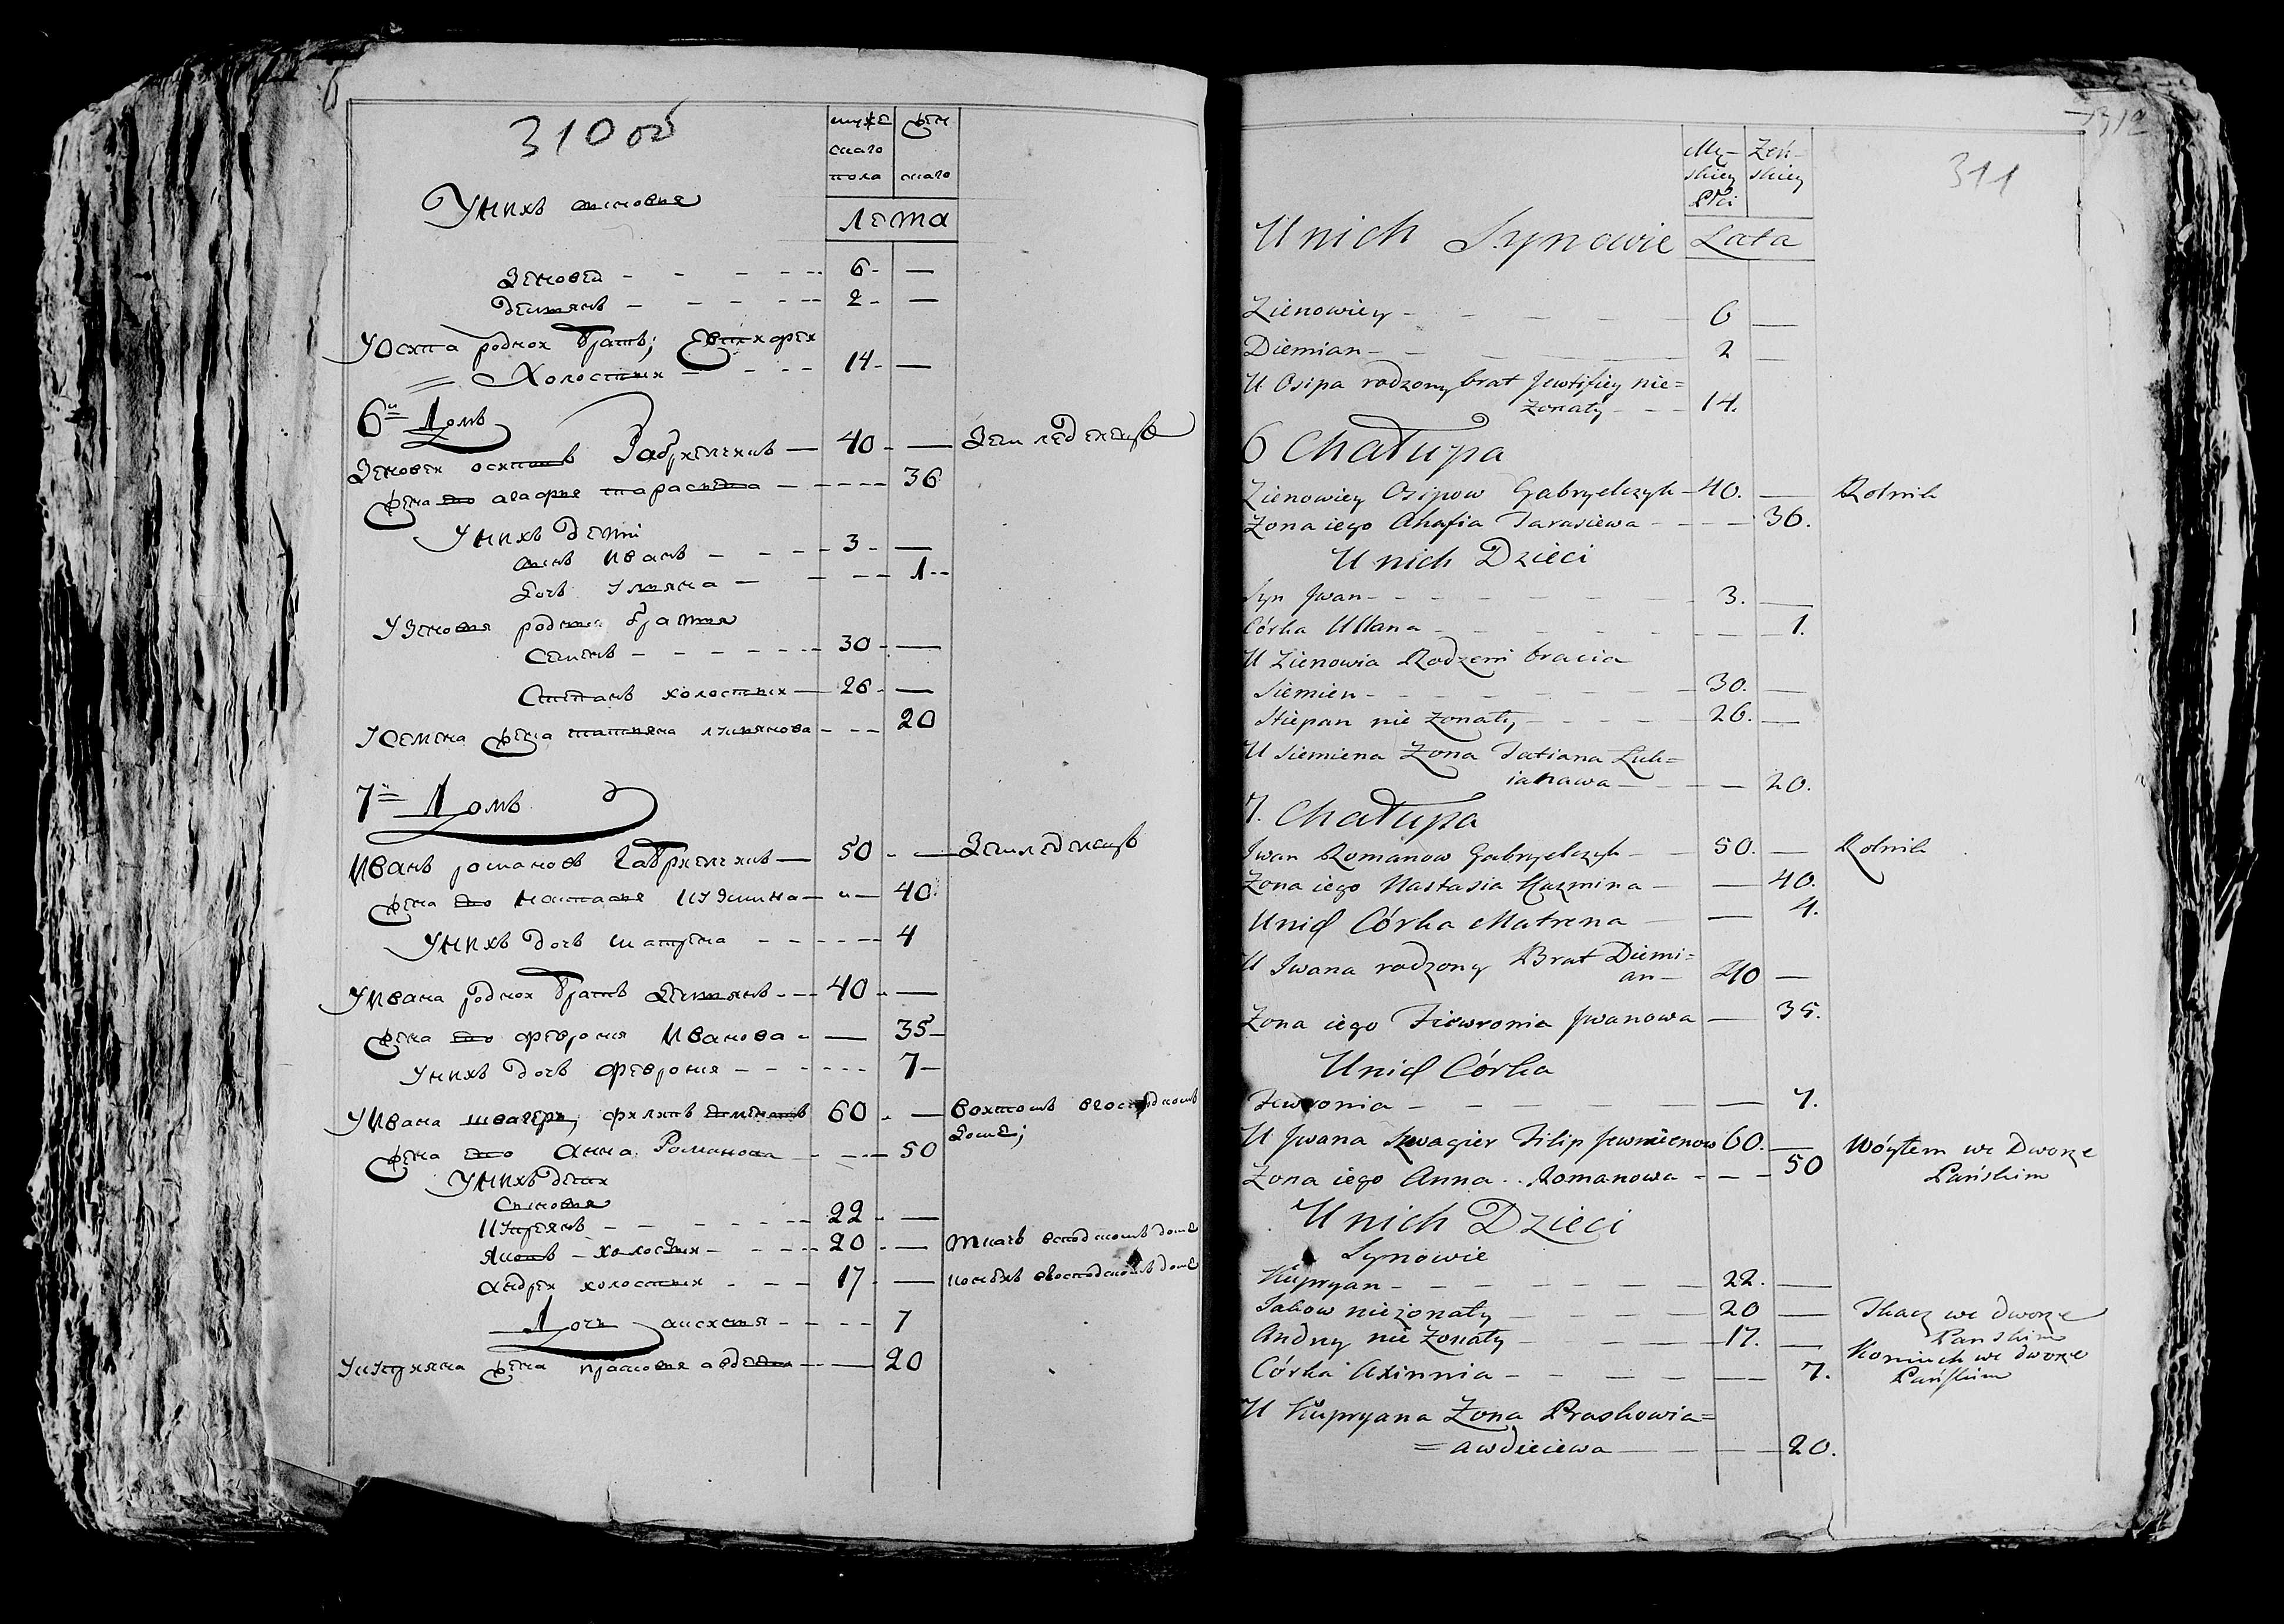 310 об
муже скаго пола
жен скаго
лета
У нихъ сыновья
Зеновей - - - - 6 - —
Демянъ - - - - 2 - —
У Осипа родной братъ; Евтихфей
= Холостый - - - 14 - —
6й Домъ
Зеновей осиповъ Габрельчикъ — 40 - — Земледелецъ
жена его агафия тарасьева - - - - 36
У нихъ дети
сынъ Иванъ - - - 3 - —
Дочь Ульяна - - - - 1 - -
У Зеновия родные братья
Семенъ - - - - 30 - —
Степанъ холостый — 26 - —
У Семена жена татьяна лукьянова - - - 20
7й Домъ
Иванъ романовъ Габрельчикъ — 50 - — Земледелецъ
жена его настасия кузмина — - — 40
У нихъ дочь матрена - - - - - 4
У Ивана родной братъ Демьянъ - - - 40 - —
жена его феврония Иванова - — 35 —
У нихъ дочь феврония - - - - - 7 —
У Ивана швагеръ, филипъ 60 - — Войтомъ в господскомъ
доме;
жена его Анна Романова - - - - 50
У нихъ дети
Сыновья
Куприянъ - - - - - 22 - —
Яковъ - холостый - - - - 20 - — ткачъ в господскомъ доме
андрей холостый - - - 17 - — конюхъ в господскомъ доме
Дочь аксенья - - - - 7
У куприяна жена прасковья авдеева - - — 20
312
311
Mę- skiey Płci
Żeń- skiey
Lata
U nich Synowie
Zienowiey - - - - 6 —
Diemian - - - - 2 —
U Osipa rodzony brat Jewtifiey nie=
żonaty - - - 14.
6 Chałupa
Zienowiey Osipow Gabryelczyk - 40. — Rolnik
Żona iego Ahafia Tarasiewa - - - 36.
U nich Dzieci
Syn Jwan - - - - - 3. —
Córka Ullana - - - - - 1.
U Zienowia Rodzeni bracia
Siemien - - - - - 30. —
Stiepan nie żonaty - - - 26. —
U Siemiena Żona Tatiana Luk=
ianawa — - - — 20.
7. Chałupa
Jwan Romanow Gabryelczyk - — 50. — Rolnik
Żona iego Nastasia Kuzmina — — 40.
U nich Córka Matrena — — 4.
U Jwana rodzony Brat Diemi=
an — 40 —
Żona iego Fiewronia Jwanowa — 35.
U nich Córka
Fewronia - - - - — 7.
U Jwana Szwagier Filip Jewmienow 60. — Wóytem we Dworze
Pańskim
Żona iego Anna . . Romanowa - - - 50
U nich Dzieci
Synowie
Kupryan - - - - - 22. —
Jakow nieżonaty — - — 20 — Tkacz we dworze
Pańskim
Andrey nie żonaty - - — 17. — Koniuch we dworze
Pańskim
Córka Axinnia - - - - — 7.
U Kupryana Żona Praskowia=
= awdieiewa — - — 20.